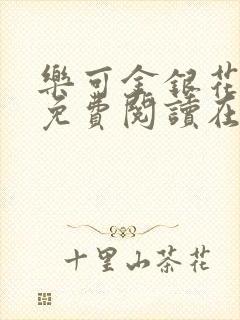 樂可金銀花
免費閱讀在
十里山茶花